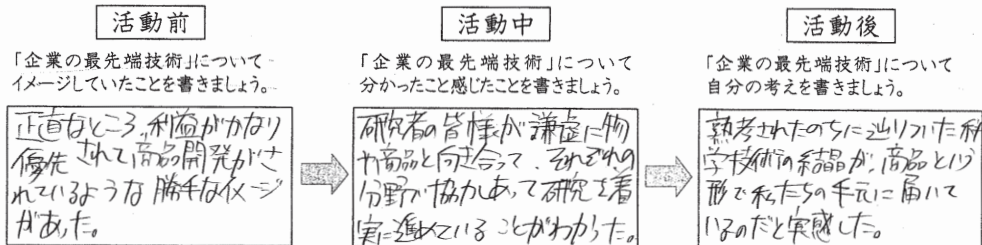 活動前
「企業の最先端技術」について
イメージしていたことを書きましょう。
正直なところ、利益がかなり
優先されて商品開発がさ
れているような勝手なイメージ
があった。
活動中
「企業の最先端技術」について
分かったこと感じたことを書きましょう。
研究者の皆様が謙虚に物
や商品と向き合って、それぞれの
分野で協力しあって研究を着
実に進めていることがわかった。
活動後
「企業の最先端技術」について
自分の考えを書きましょう。
熟考されたのちに辿りついた科
学技術の結晶が、商品という
形で私たちの手元に届いて
いるのだと実感した。